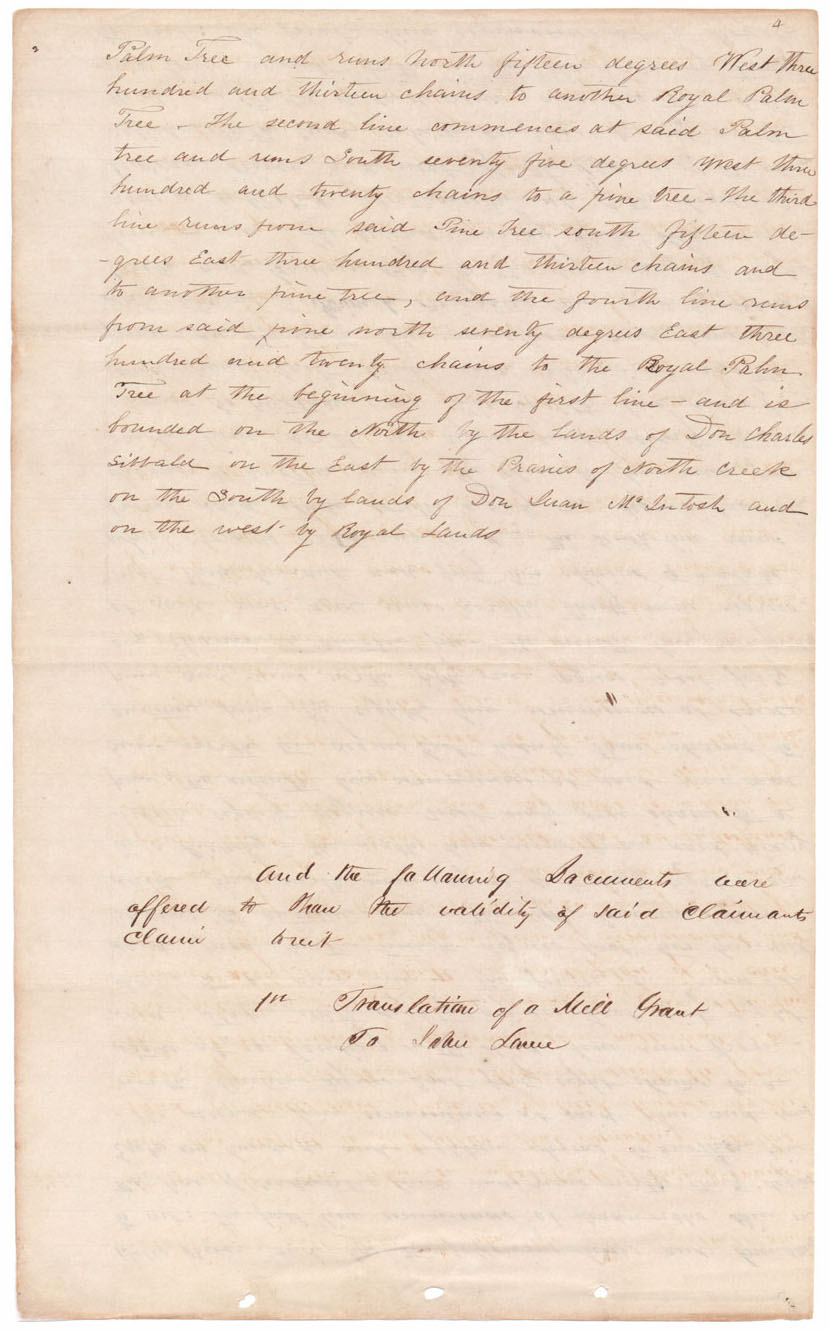 4
Palm Tree and runs North fifteen degrees West three
hundred and thirteen chains to another Royal Palm
Tree - The second line commences at said Palm
tree and runs South seventy five degrees West three
hundred and twenty chains to a pine tree - The third
line runs from said Pine Tree south fifteen de-
-grees East three hundred and thirteen chains and
to another pine tree, and the fourth line runs
from said pine north seventy degrees East three
hundred and twenty chains to the Royal Palm
Tree at the beginning of the first line - and is
bounded on the North by the lands of Don Charles
Sibbald on the East by the Praries of North Creek
on the South by lands of Don Juan McIntosh and
on the west by Royal Lands
And the following Documents were
offered to shew the validity of said Claimants
Claim towit
1st Translation of a Mill Grant
To John Lowe